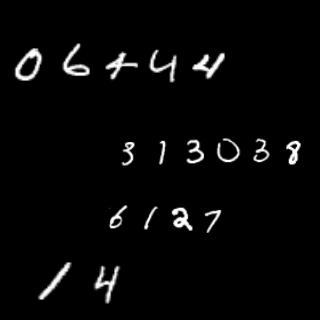 06444
313038
6127
14